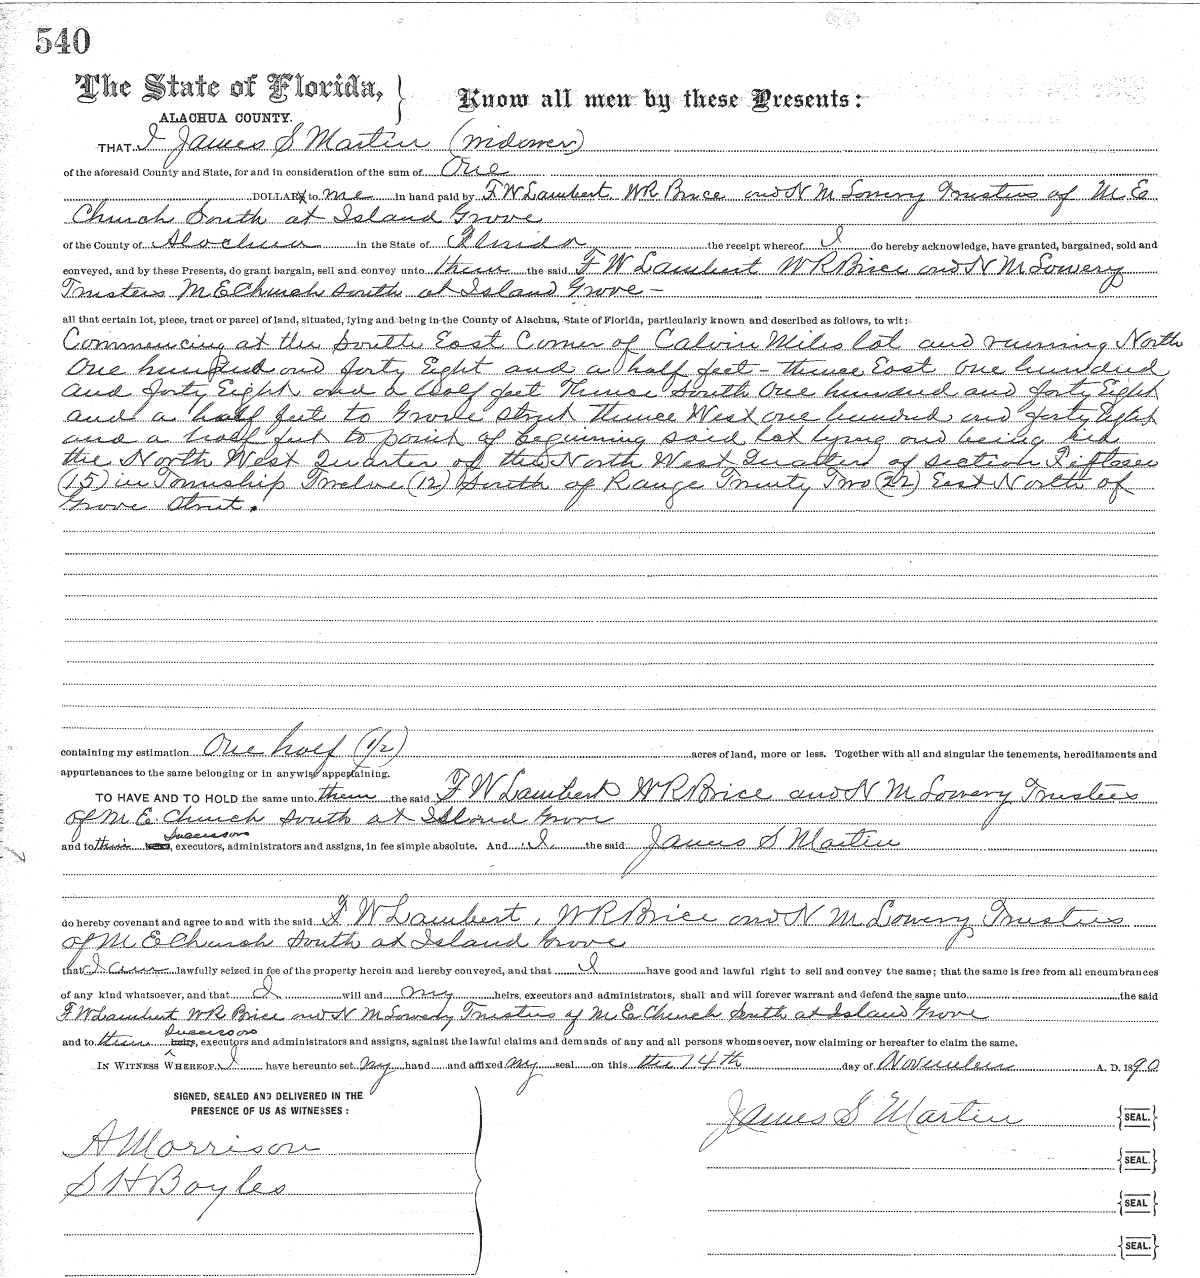 540
The State of Florida, } Know all men by these Presents:
ALACHUA COUNTY.
THAT I James S Martin (widower)
of the aforesaid County and State, for and in consideration of the sum of One
DOLLAR to me in hand paid by F W Lambert, W R Brice and N M Lowery Trustees of M. E.
Church South at Island Grove
of the County of Alachua in the State of Florida the receipt whereof I do hereby acknowledge, have granted, bargained, sold and
conveyed, and by these Presents, do grant bargain, sell and convey unto them the said F W Lambert W R Brice and N M Lowery
Trustees M E Church South at Island Grove –
all that certain lot, piece, tract or parcel of land, situated, lying and being in the County of Alachua, State of Florida, particularly known and described as follows, to wit:
Commencing at the South East Corner of Calvin Miles lot and running North
One hundred and forty Eight and a half feet – thence East one hundred
and forty Eight and a half feet Thence South One hundred and forty Eight
and a half feet to Grove street thence West one hundred and forty Eight
and a half feet to point of beginning said lot lying and being in
the North West Quarter of the North West Quarter of section Fifteen
(15) in Township Twelve (12) South of Range Twenty Two (22) East North of
Grove Street.
containing my estimation One half (1/2) acres of land, more or less. Together with all and singular the tenements, hereditaments and
appurtenances to the same belonging or in anywise appertaining.
TO HAVE AND TO HOLD the same unto them the said F W Lambert W R Brice and N M Lowery Trustees
of M. E. Church South at Island Grove
Successors
and to their heirs, executors, administrators and assigns, in fee simple absolute. And I the said James S Martin
do hereby covenant and agree to and with the said F W Lambert, W R Brice and N M Lowery Trustees
of M E Church South at Island Grove
that I am lawfully seized in fee of the property herein and hereby conveyed, and that I have good and lawful right to sell and convey the same; that the same is free from all encumbrances
of any kind whatsoever, and that I will and my heirs, executors and administrators, shall and will forever warrant and defend the same unto the said
F W Lambert W R Brice and N M Lowery Trustees of M E Church South at Island Grove
Successors
and to their heirs, executors and administrators and assigns, against the lawful claims and demands of any and all persons whomsoever, now claiming or hereafter to claim the same.
IN WITNESS WHEREOF, I have hereunto set my hand and affixed my seal on this the 14th day of November A. D. 1890
SIGNED, SEALED AND DELIVERED IN THE
PRESENCE OF US AS WITNESSES:
James S Martin {SEAL.}
A Morrison
{SEAL.}
S H Boyles
{SEAL}
{SEAL.}